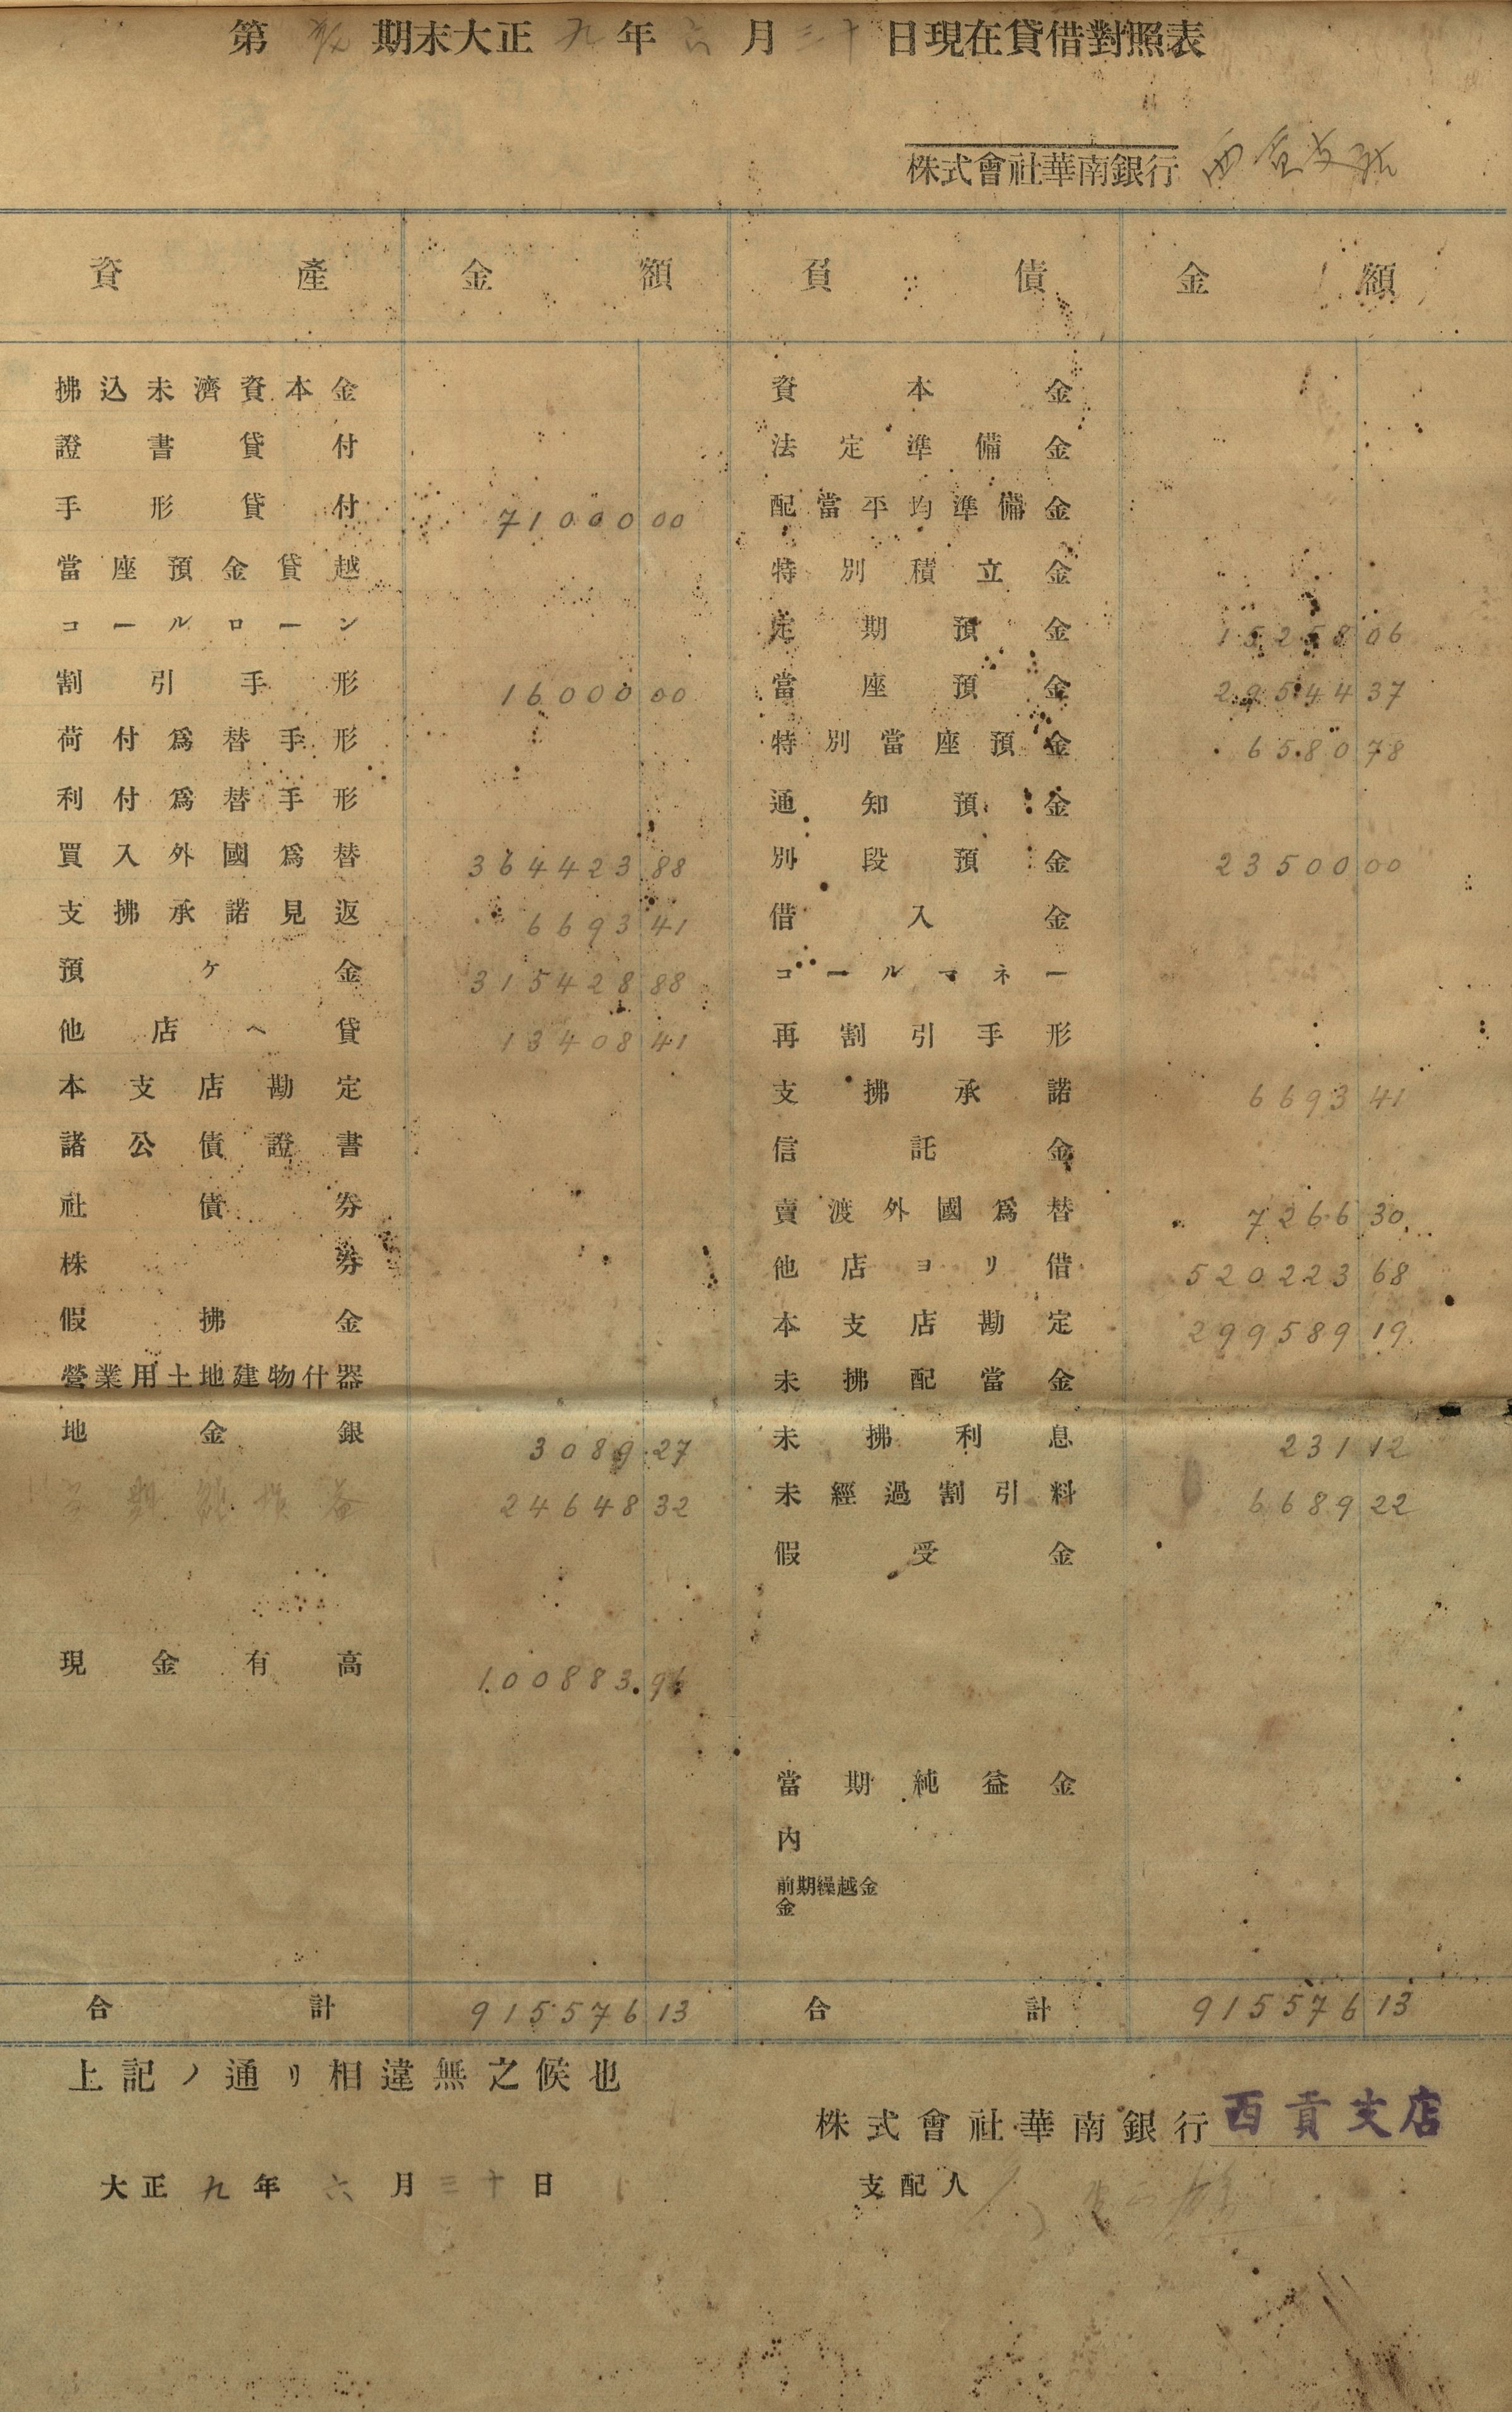 第貳期末大正九年六月三十日現在貸借對照表
株式會社華南銀行 西貢支店
資產 金額 負債 金額
拂込未濟資本金 資本金
證書貸付 法定準備金
手形貸付 71000 00 配當平均準備金
當座預金貸越 特別積立金
コールローン 定期預金 15258 06
割引手形 16000 00 當座預金 29544 37
荷付爲替手形 特別當座預金 6580 78
利付爲替手形 通知預金
買入外國爲替 364423 88 別段預金 23500 00
支拂承諾見返 6693 41 借入金
預ケ金 315428 88 コールマネー
他店ヘ貸 13408 41 再割引手形
本支店勘定 支拂承諾 6693 41
諸公債證書 信託金
社債券 賣渡外國爲替 7266 30
株券 他店ヨリ借 520223 68
假拂金 本支店勘定 299589 19
營業用土地建物什器 未拂配當金
地金銀 3089 27 未拂利息 231 12
當期純損益 24648 32 未經過割引料 6689 22
假受金
現金有高 100883 96
當期純益金
內
前期繰越金
金
合計 915576 13 合計 915576 13
上記ノ通リ相違無之候也
株式會社華南銀行西貢支店
大正九年六月三十日 支配人